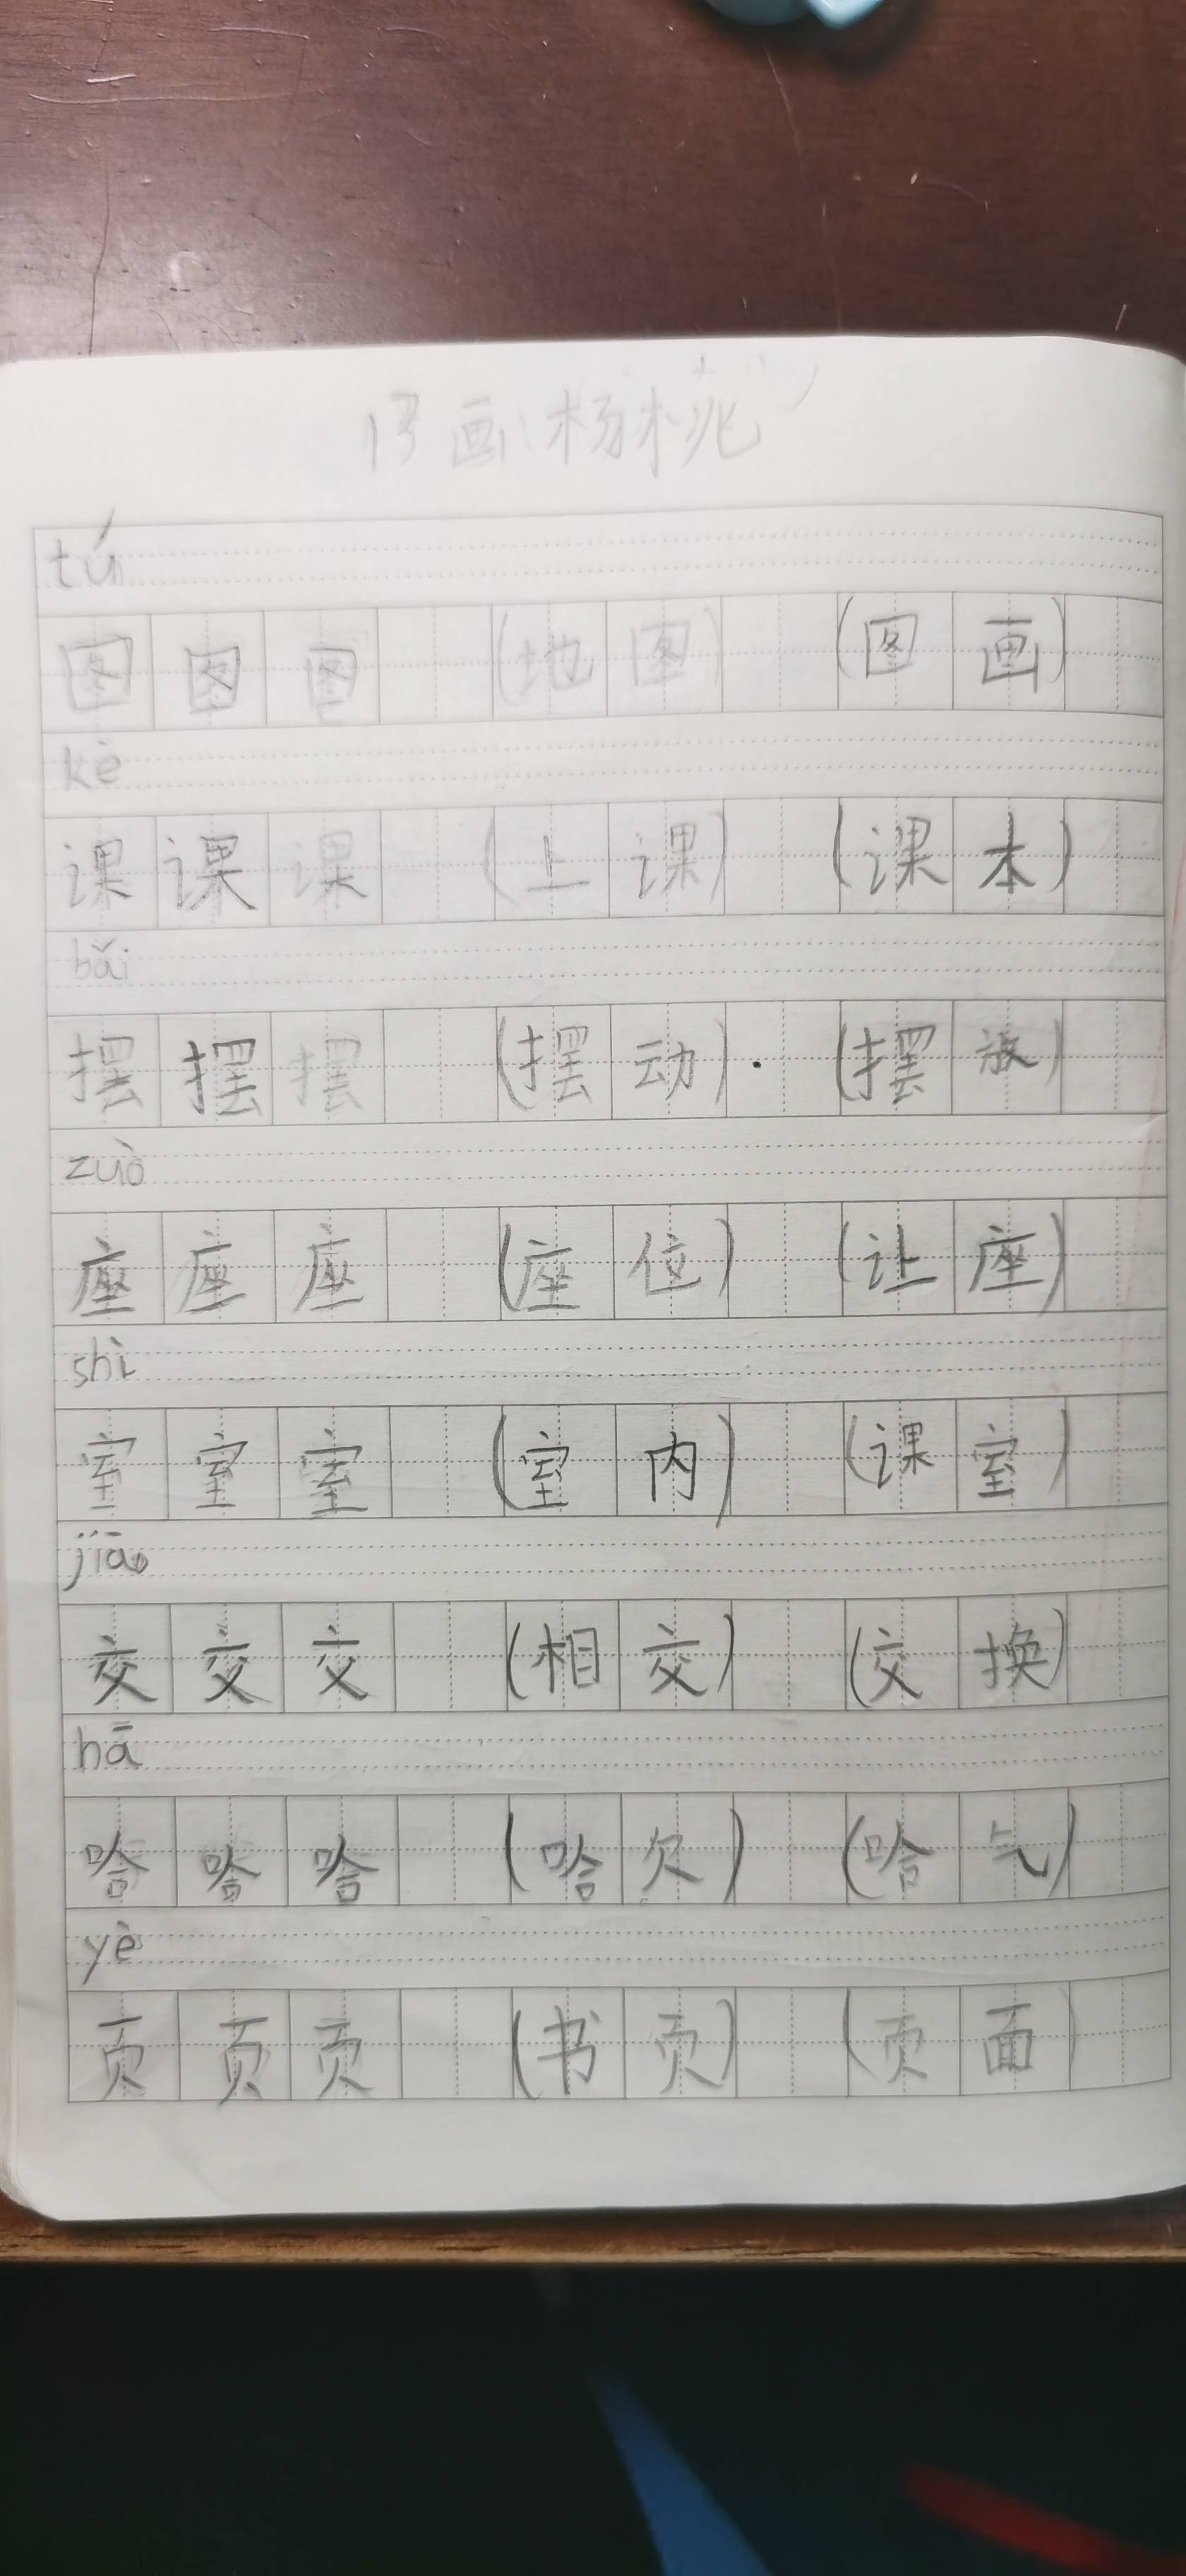 13画杨桃
tú
图图图(地图)(图画)
kè
课课课(上课)(课本)
bǎi
摆摆摆(摆动)(摆放)
zuò
座座座(座位)(让座)
shì
室室室(室内)(课室)
jiāo
交交交(相交)(交换)
hā
哈哈哈(哈欠)(哈气)
yè
页页页(书页)(页面)